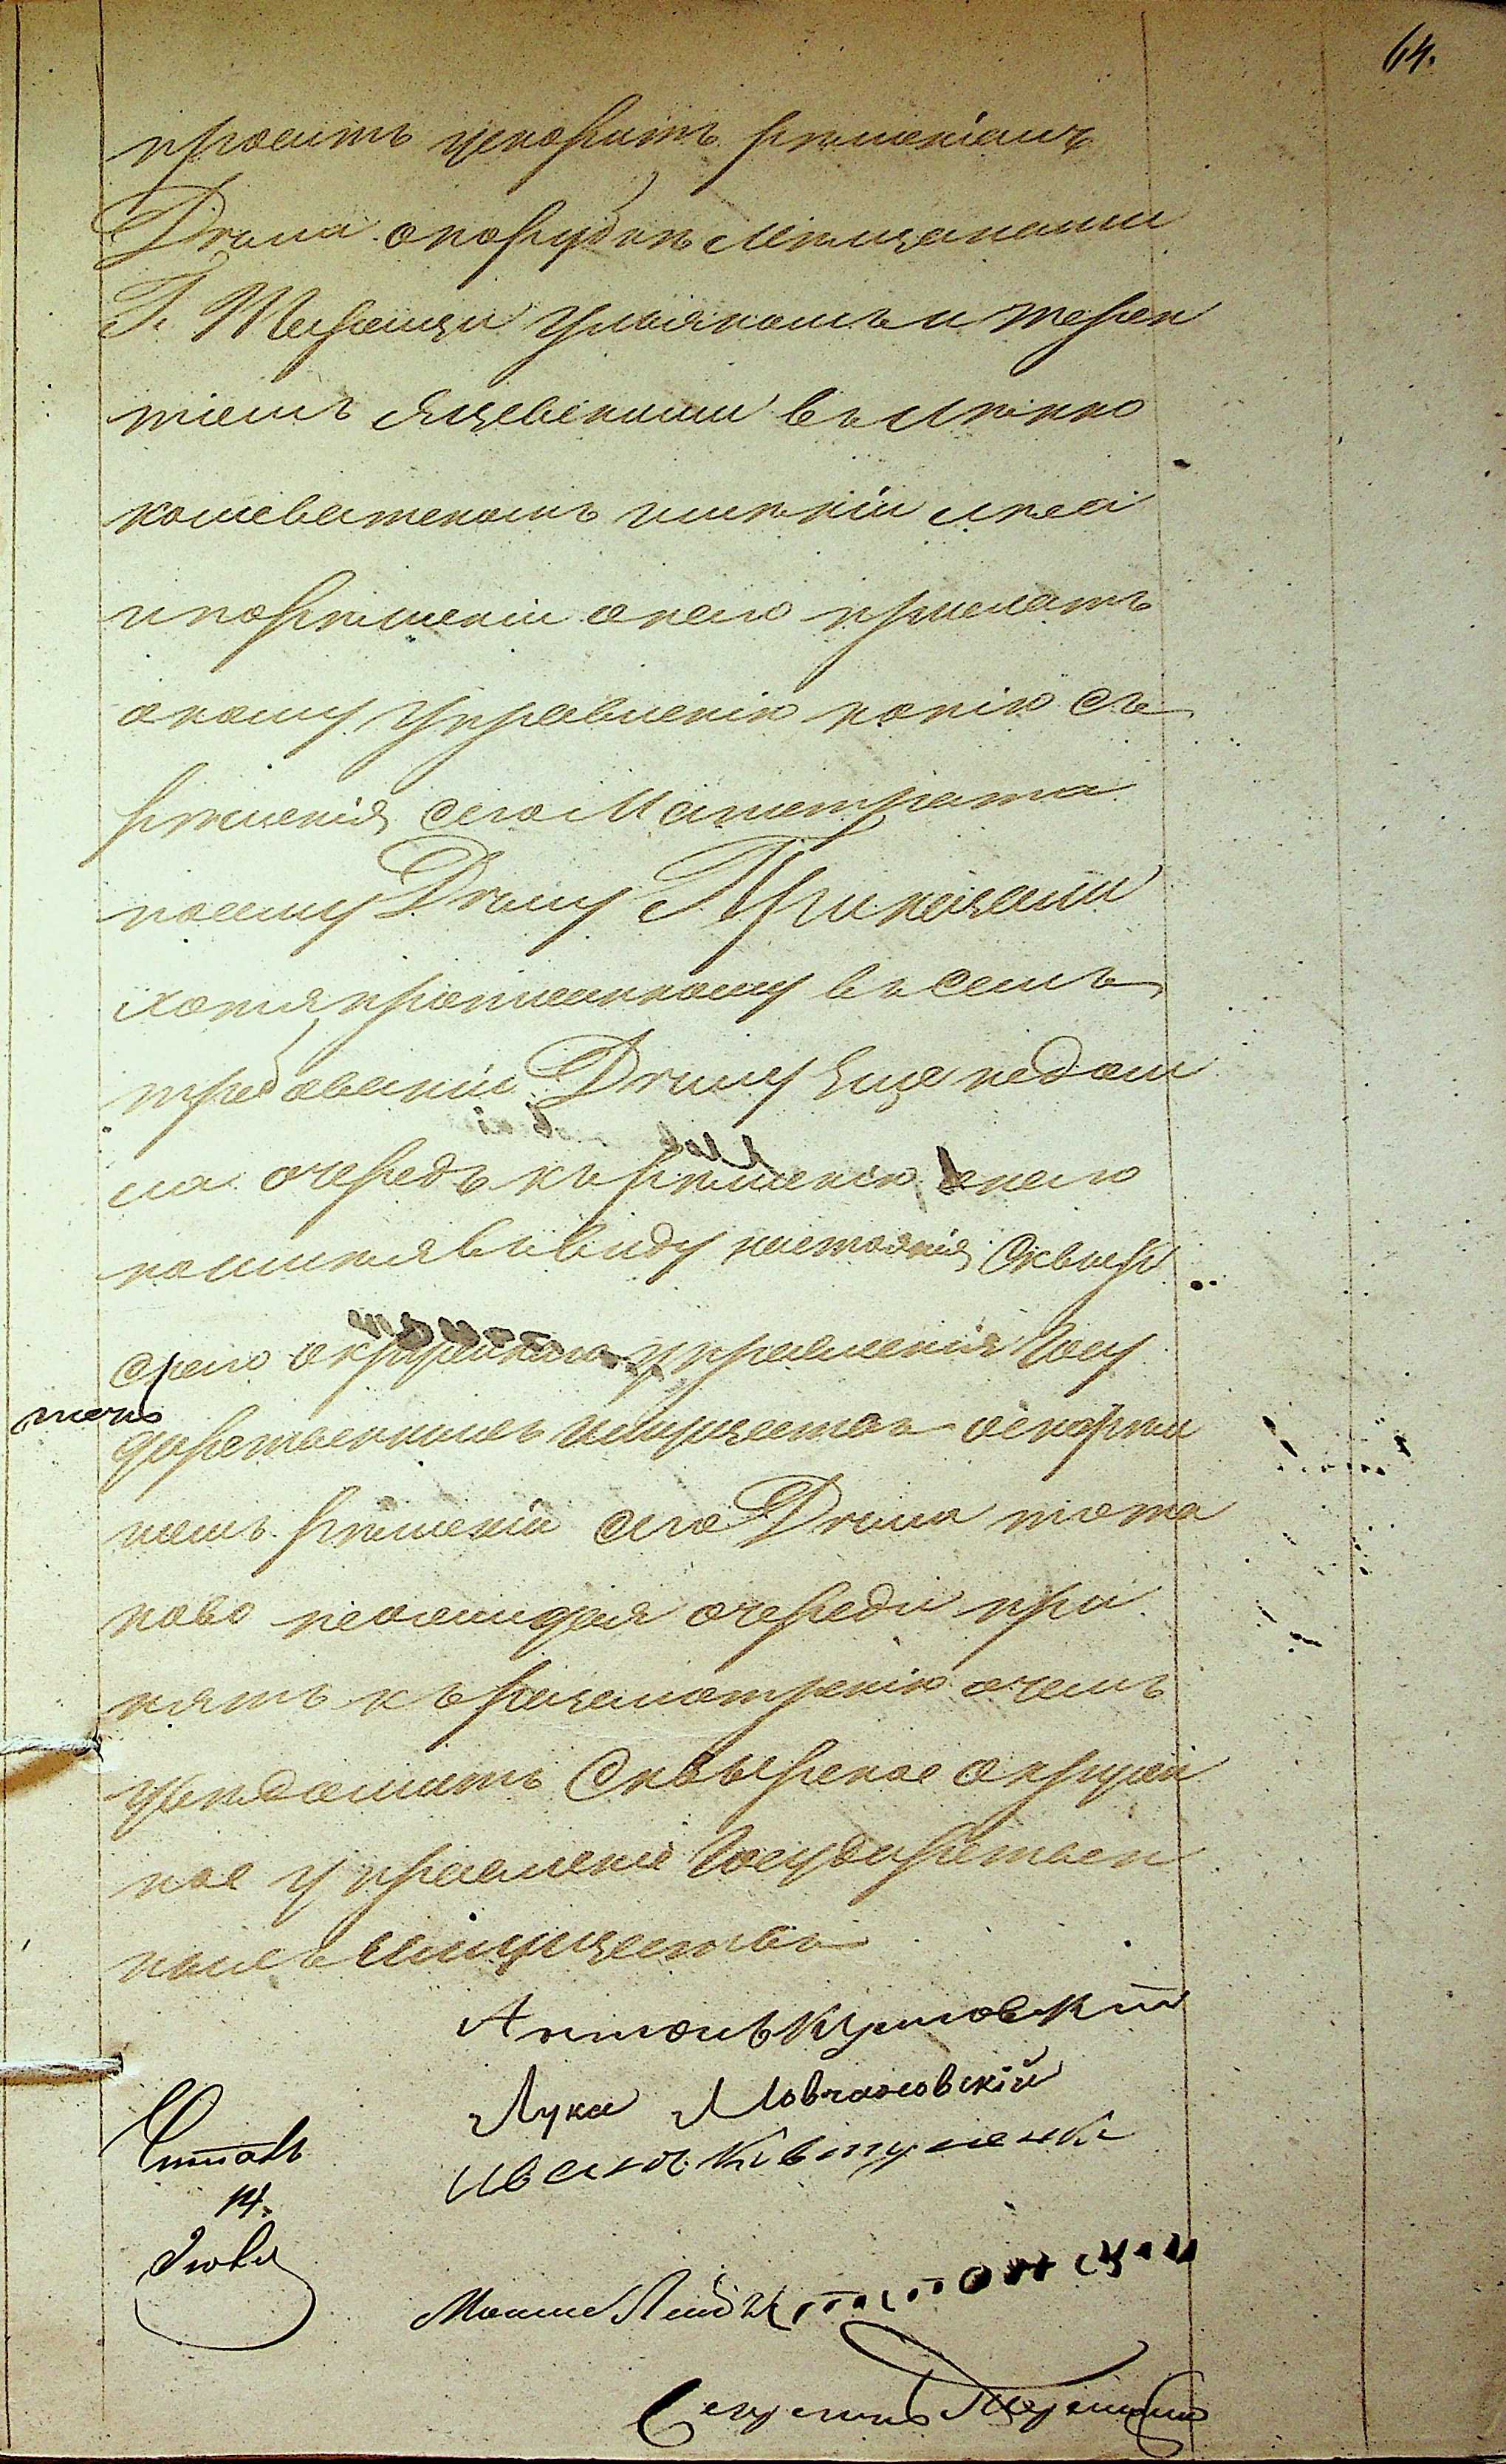 64.
проситъ ускоритъ рѣшеніемъ
Дѣла о порубкѣ мѣщанами
Г. Таращи Ульяномъ и Терен
тіемъ Яцевскими въ Лѣнко
кошеватскомъ имѣніи лѣса
и порѣшеніи онаго прислать
оному Управленію копію съ
рѣшенія сего Магистрата
посему Дѣлу Приказали
хотя прописанному въ семъ
требованіи Дѣлу Еще недош
ла очередъ къ рѣшенію онаго
но имѣя въ виду настоянія Сквыр
скаго окружнаго управленія Госу
дарственныхъ имуществъ о скорѣй
шемъ рѣшеніи сего Дѣла то та
ково неожидая очереди при
нять къ разсмотренію о чемъ
увѣдомить Сквырское окруж
ное управленіе Государствен
ныхъ Имуществъ
Антонъ
Лука Мовчановскій
Иванъ Квитченко
Читалъ
14.
Іюля
Мошко Лейб
Секретарь